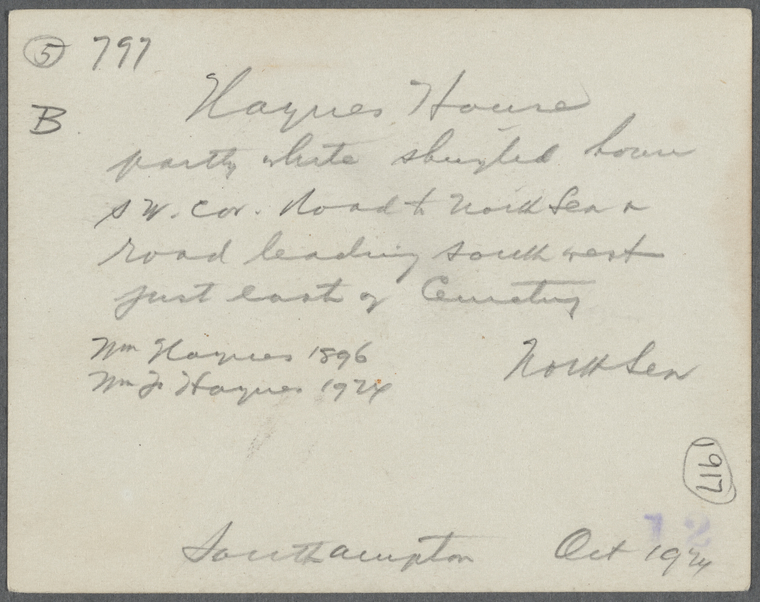 5 797
B
Haynes House
partly white shingled house
S W. cor. Road to North Sea &
road leading south west
just east of Cemetery
Wm Haynes 1896
Wm F. Haynes 1924
North Sea
1917
12
Southampton Oct 1924